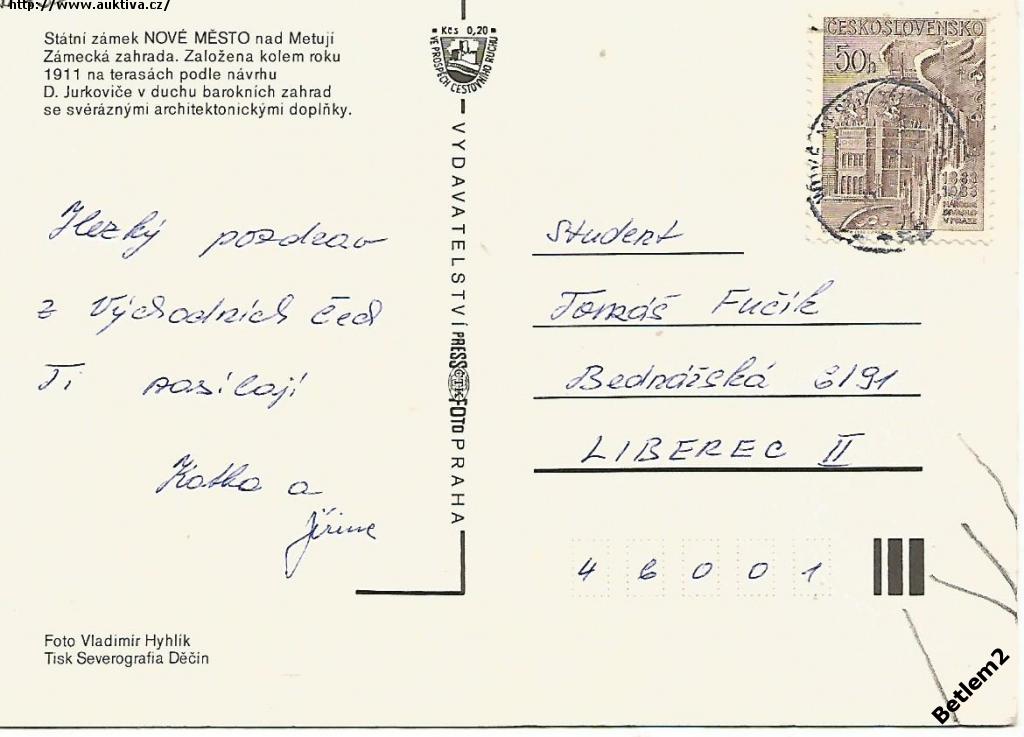 http://www.auktiva.cz/
Státní zámek NOVÉ MĚSTO nad Metují
Zámecká zahrada. Založena kolem roku
1911 na terasách podle návrhu
D. Jurkoviče v duchu barokních zahrad
se svéráznými architektonickými doplňky.
Kčs 0,20
VE PROSPĚCH CESTOVNÍHO RUCHU
ČESKOSLOVENSKO
50h
1883
1983
NÁRODNÍ
DIVADLO
V PRAZE
Hezký pozdrav
z Východních Čech
Ti zasílají
Katka a
Jiřina
VYDAVATELSTVÍ PRESSFOTO PRAHA
ČTK
Student
Tomáš Fučík
Bednářská 6/91
LIBEREC II
46001
Foto Vladimír Hyhlík
Tisk Severografia Děčín
Betlem2